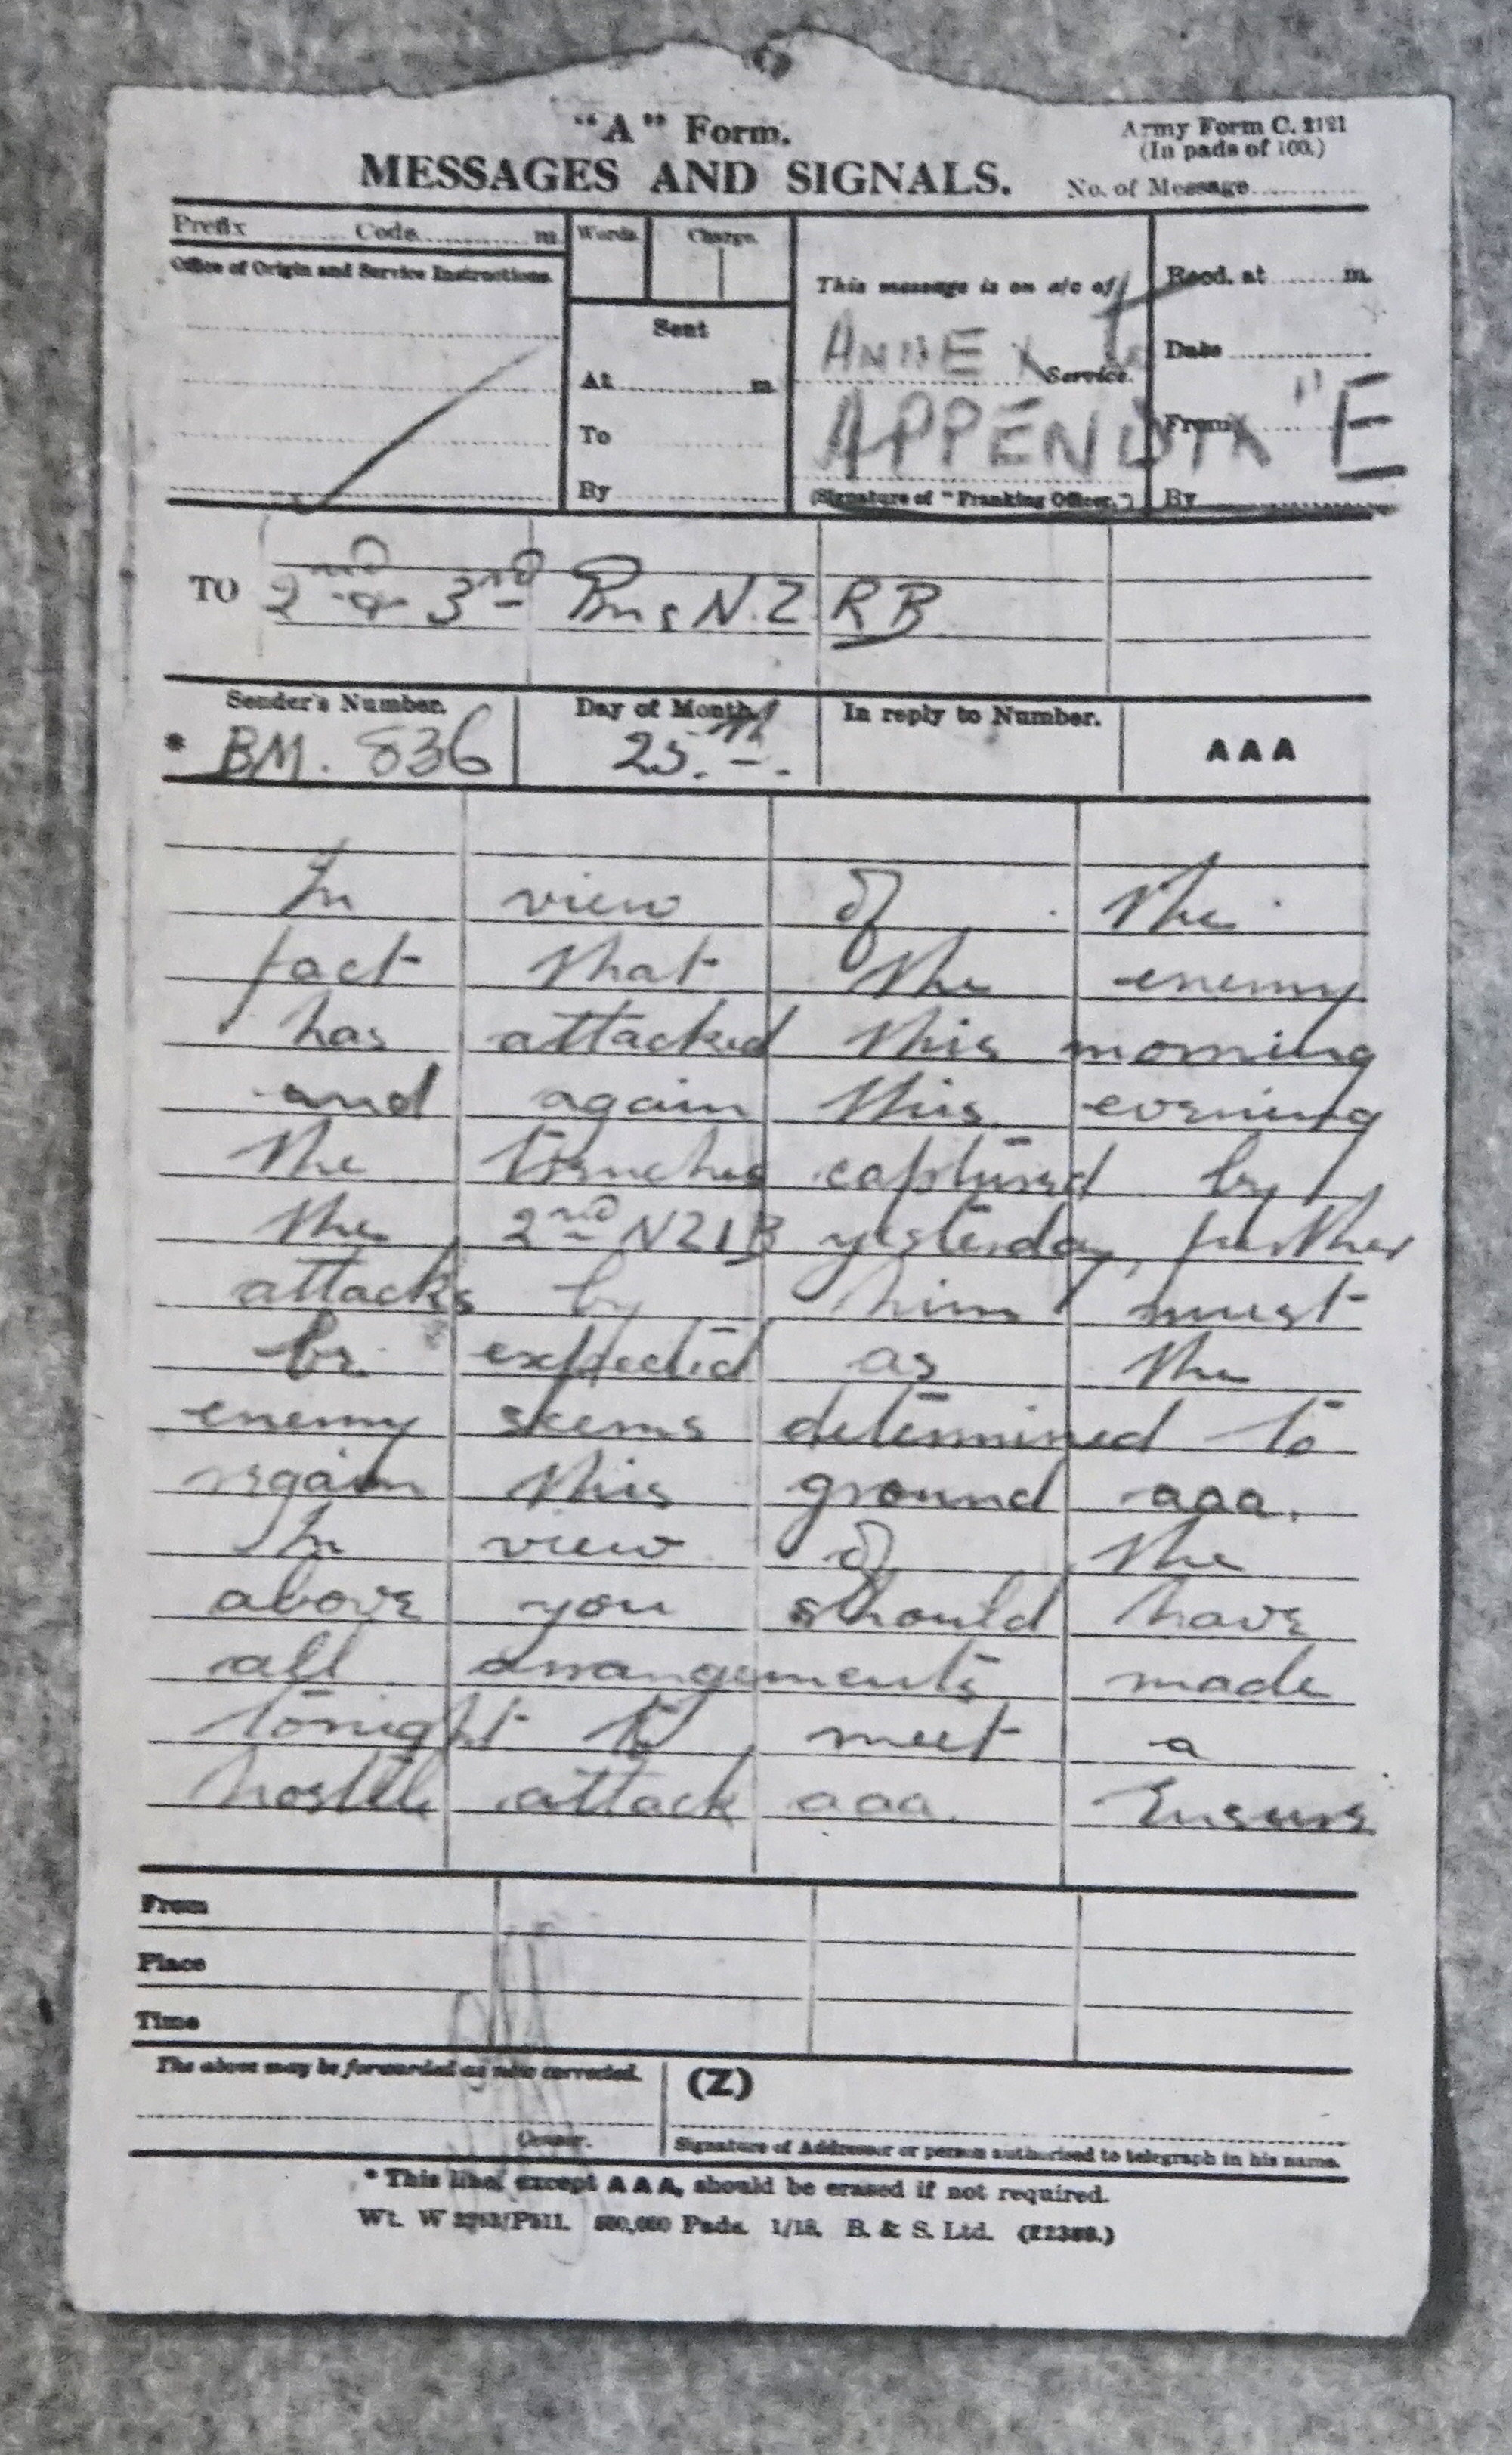 "A" Form.
Army Form C. 2121
(In pads of 100.)
MESSAGES AND SIGNALS.
No. of Message
Prefix Code m
Words
Charge.
Office of Origin and Service Instructions.
This message is on a/c of
Recd. at m.
Sent
ANNEX to
Service.
Date
At m
APPENDIX "E
From
To
(Signature of "Franking Officer.")
By
By
TO 2nd & 3rd Bns N.Z.RB
Sender's Number.
Day of Month.
In reply to Number.
AAA
* BM. 836
25.th.
In view of the
fact that the enemy
has attacked this morning
and again this evening
the trenches captured by
the 2nd NZIB yesterday, further
attacks by him must
be expected as the
enemy seems determined to
regain this ground aaa.
In view of the
above you should have
all arrangements made
tonight to meet a
hostile attack aaa. Ensure
From
Place
Time
The above may be forwarded as now corrected.
(Z)
Censor.
Signature of Addressor or person authorised to telegraph in his name.
* This line, except AAA, should be erased if not required.
Wt. W 500,000 Pads. 1/18. B. & S. Ltd.